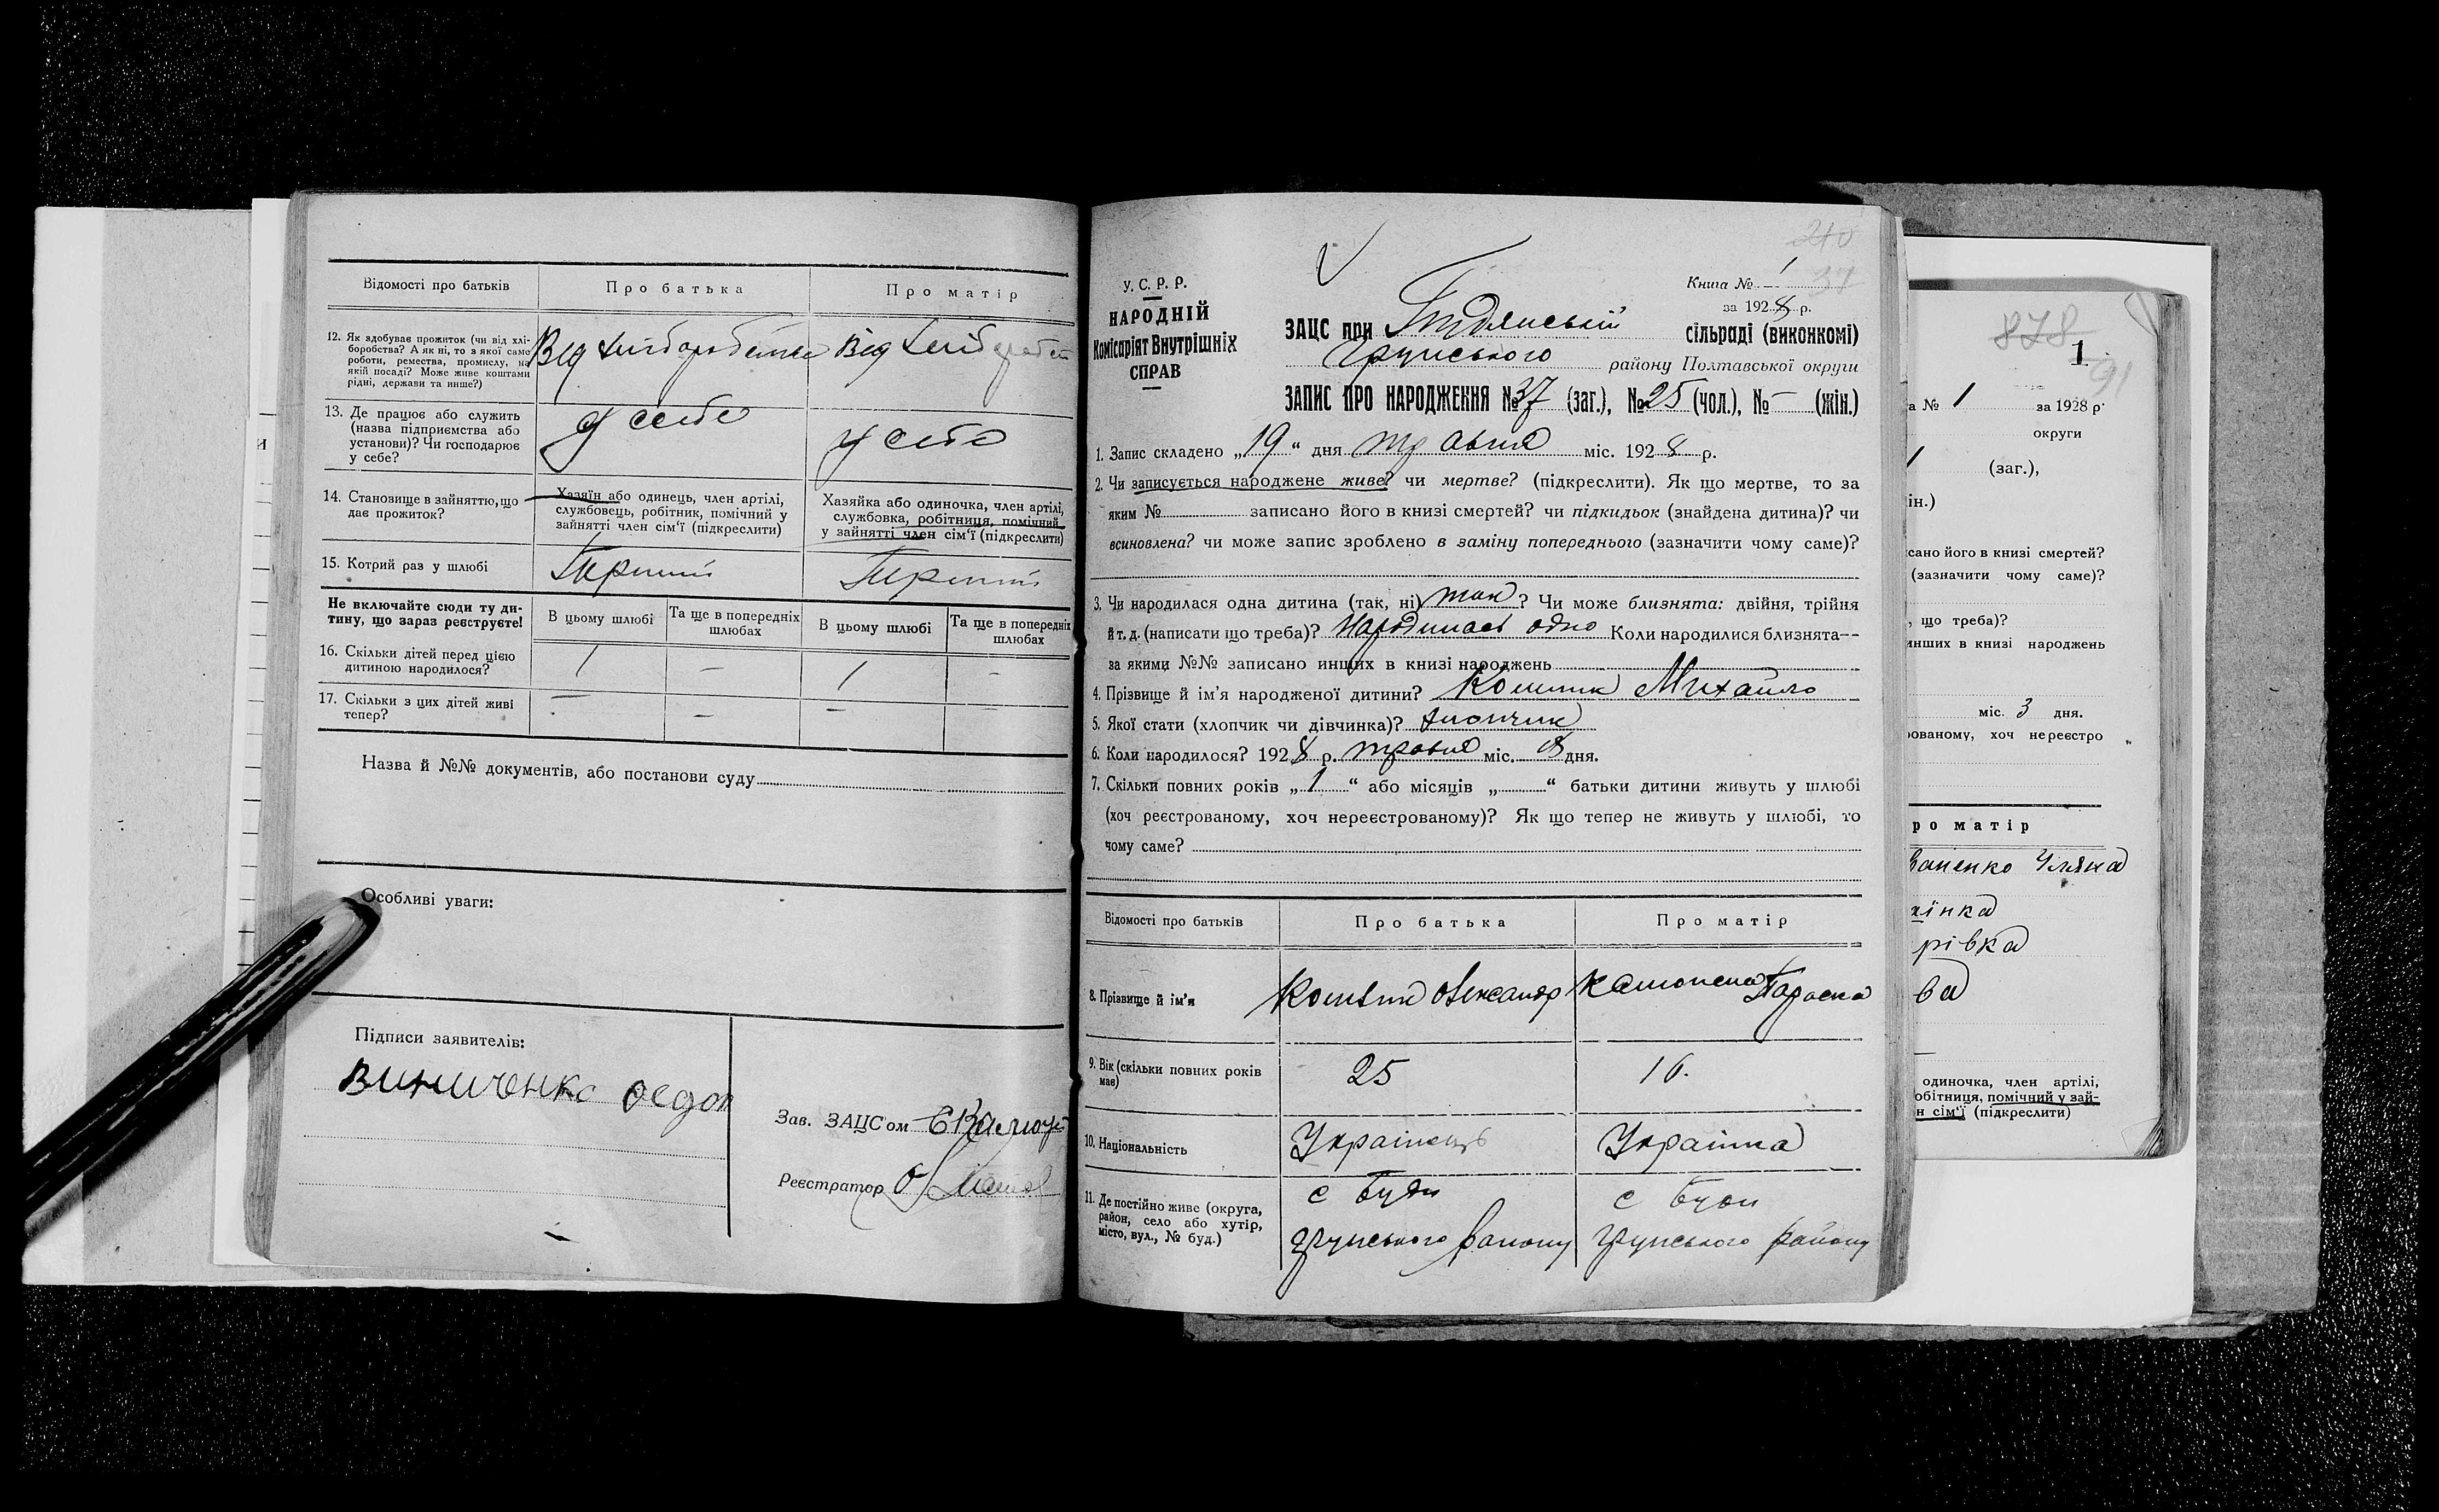 Відомості про батьків
Про батька
Про матір
12. Як здобуває прожиток (чи від хлі-
боробства? А як ні, то з якої саме
роботи, ремества, промислу, на
якій посаді? Може живе коштами
рідні, держави та инше?)
Від хліборобства
Від
13. Де працює або служить
(назва підприємства або
установи)? Чи господарює
у себе?
у себе
у себе
14. Становище в зайняттю, що
дає прожиток?
Хазяїн або одинець, член артілі,
службовець, робітник, помічний у
зайнятті член сім'ї (підкреслити)
Хазяйка або одиночка, член артілі,
службовка, робітниця, помічний
у зайнятті член сім'ї (підкреслити)
15. Котрий раз у шлюбі
Не включайте сюди ту ди-
тину, що зараз реєструєте!
В цьому шлюбі
Та ще в попередніх
шлюбах
В цьому шлюбі
Та ще в попередніх
шлюбах
16. Скільки дітей перед цією
дитиною народилося?
1 – 1 –
17. Скільки з цих дітей живі
тепер?
– – –
Назва й №№ документів, або постанови суду
Особливі уваги:
Підписи заявителів:
Виниченко
Зав. ЗАЦС'ом
Реєстратор
210
37
У. С. Р. Р.
НАРОДНІЙ
Комісаріят Внутрішніх
СПРАВ
Книга № 1
за 1928 р.
ЗАЦС при сільраді (виконкомі)
Грунського району Полтавської округи
ЗАПИС ПРО НАРОДЖЕННЯ № 37 (заг.), № 25 (чол.), № – (жін.)
1. Запис складено „19“ дня травня міс. 1928 р.
2. Чи записується народжене живе? чи мертве? (підкреслити). Як що мертве, то за
яким № записано його в книзі смертей? чи підкидьок (знайдена дитина)? чи
всиновлена? чи може запис зроблено в заміну попереднього (зазначити чому саме)?
3. Чи народилася одна дитина (так, ні) так? Чи може близнята: двійня, трійня
й т. д. (написати що треба)? Народилась одно Коли народилися близнята—
за якими №№ записано инших в книзі народжень
4. Прізвище й ім'я народженої дитини? Михайло
5. Якої стати (хлопчик чи дівчинка)? хлопчик
6. Коли народилося? 1928 р. травня міс. 8 дня.
7. Скільки повних років „1“ або місяців „ “ батьки дитини живуть у шлюбі
(хоч реєстрованому, хоч нереєстрованому)? Як що тепер не живуть у шлюбі, то
чому саме?
Відомості про батьків
Про батька
Про матір
8. Прізвище й ім'я
Олександр
Параска
9. Вік (скільки повних років
має)
25
16.
10. Національність
Українець
Українка
11. Де постійно живе (округа,
район, село або хутір,
місто, вул., № буд.)
с Буди
грунського району
с Буди
грунського району
878
1
91
а № 1 за 1928 р.
округи
(заг.),
ін.)
сано його в книзі смертей?
(зазначити чому саме)?
, що треба)?
инших в книзі народжень
міс. 3 дня.
рованому, хоч нереєстро
ро матір
ваненко Уляна
їнка
рівка
ва
одиночка, член артілі,
обітниця, помічний у зай-
н сім'ї (підкреслити)